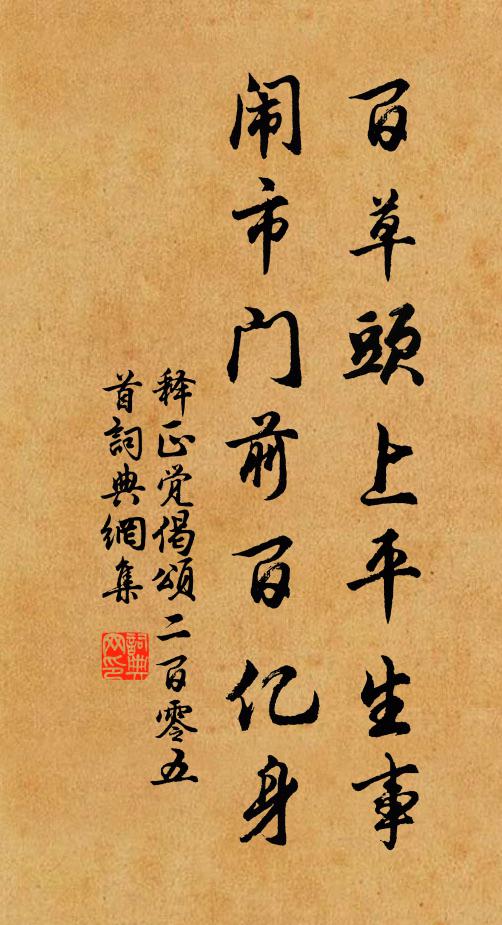 百草頭上平生事
闹市门前百亿身
释正觉偈頌二百零五
首詞典網集
詞典网印